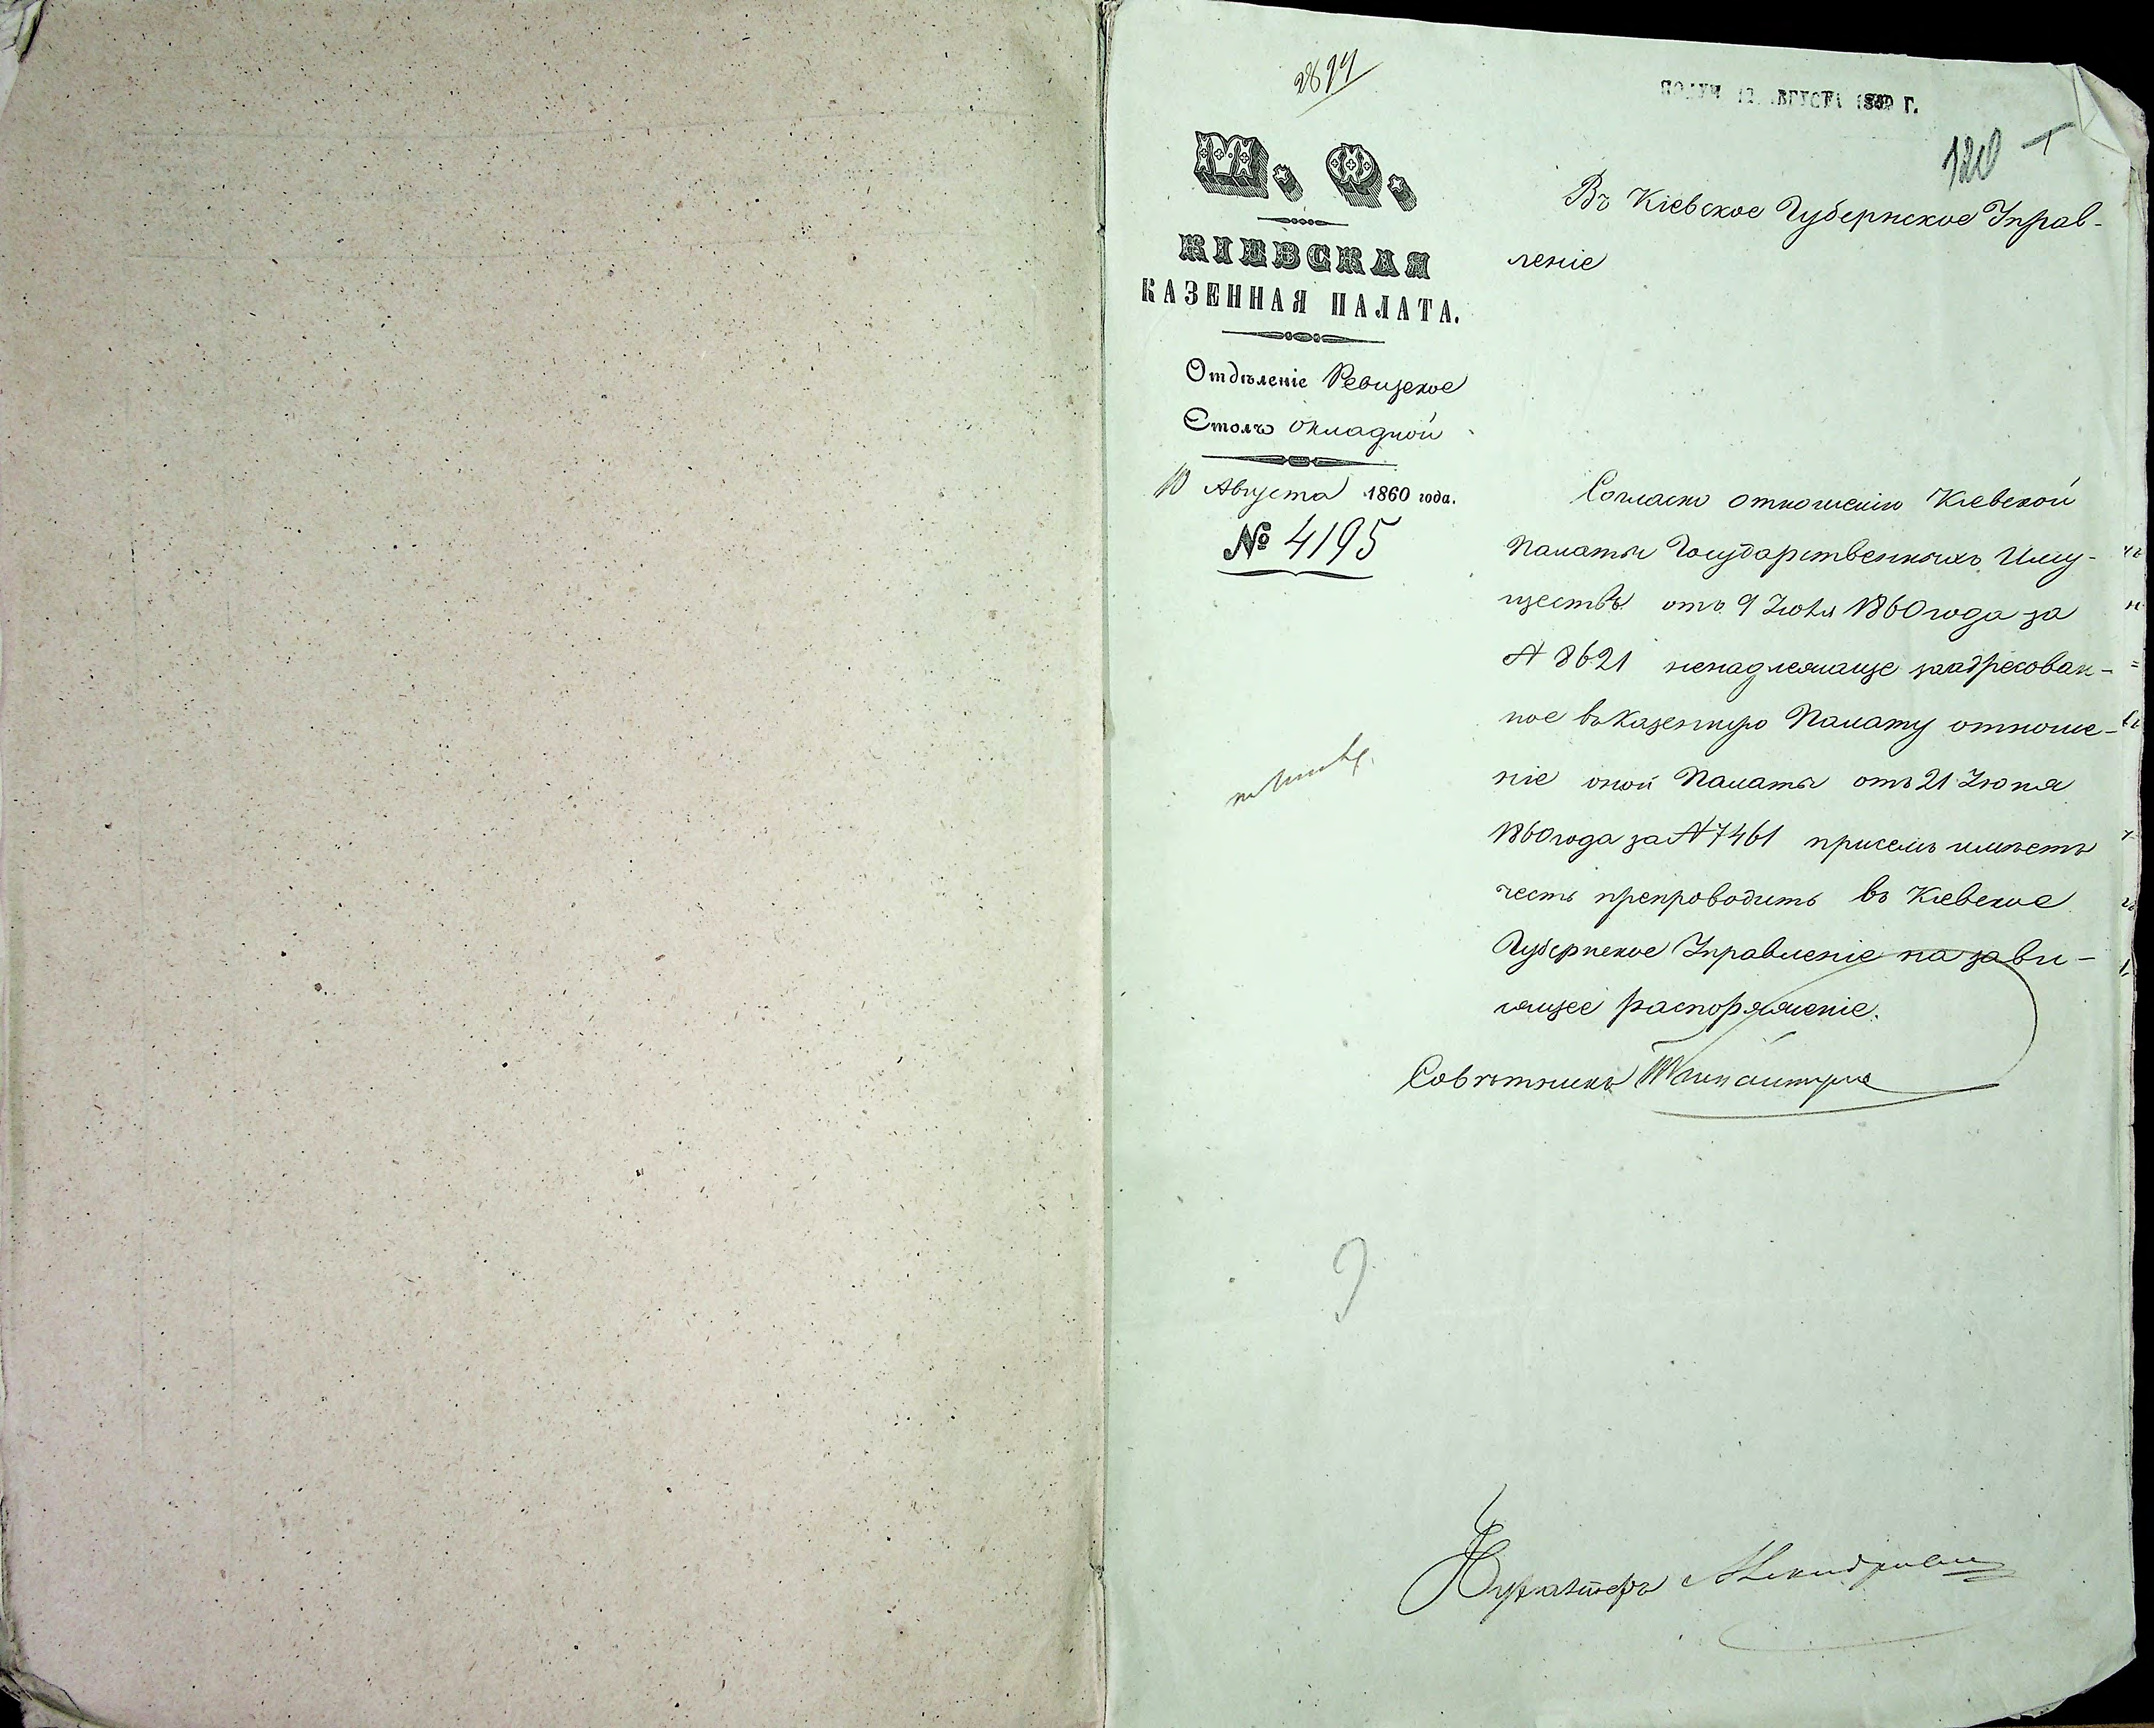 2899
ПОЛУЧ 12 АВГУСТА 1860 Г.
120
М. Ф.
КІЕВСКАЯ
КАЗЕННАЯ ПАЛАТА.
Отдѣленіе Ревизское
Столъ окладной
10 Августа 1860 года.
№ 4195
Въ Кіевское Губернское Управ-
леніе
Согласно отношенію Кіевской
Палаты Государственныхъ Иму-
ществъ отъ 9 Іюля 1860 года за
№ 8621 ненадлежаще заадресован-
ное въ Казенную Палату отноше-
ніе оной Палаты отъ 21 Іюня
1860 года за № 7461 при семъ имѣетъ
честь препроводить въ Кіевское
Губернское Управленіе на зави-
сящее распоряженіе.
Совѣтникъ